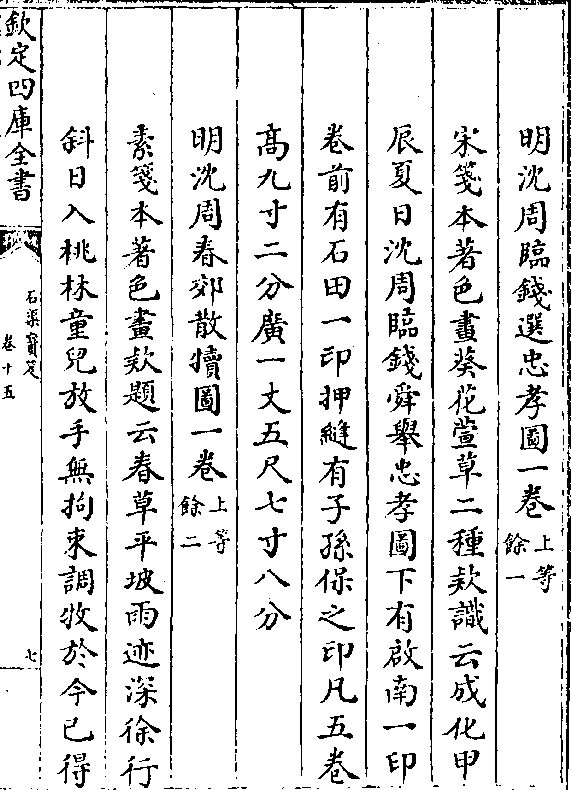 明沈周臨錢選忠孝圖一卷上等
餘一
宋箋本著色畫葵花萱草二種欵識云成化甲
辰夏日沈周臨錢舜舉忠孝圖下有啟南一印
卷前有石田一印押縫有子孫保之印凡五卷
高九寸二分廣一丈五尺七寸八分
明沈周春郊散犢圖一卷上等
餘二
素箋本著色畫欵題云春草平坡雨迹深徐行
斜日入桃林童兒放手無拘束調牧於今已得
欽定四庫全書
石渠寳笈
卷十五
七